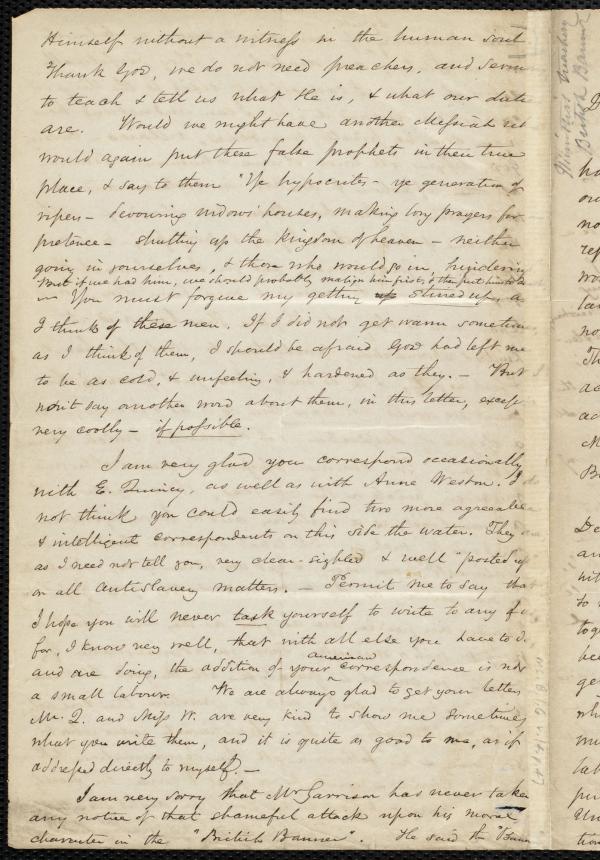 Himself without a witness in the human soul
Thank God, we do not need preachers, and
to teach & tell us what He is, & what our
are. Would we might have another Messiah
would again put these false prophets in their true
place, & say to them "Ye hypocrites - ye generation of
vipers - devouring widows' houses, making long prayers for
pretence - shutting up the kingdom of heaven - neither
going in yourselves, & those who would go in, hindering
But if we had him, we should probably malign him first, & then put him to
- You must forgive my getting up stirred up, a
I think of these men. If I did not get warm
as I think of them, I should be afraid God had left me
to be as cold, & unfeeling, & hardened as they. - But
won't say another word about them, in this letter, except
very coolly - if possible.
I am very glad you correspond occasionally
with E. Quincy, as well as with Anne Weston. I
not think you could easily find two more
& intelligent correspondents on this side the water. They
as I need not tell you, very clear-sighted & well "posted up
on all antislavery matters. - Permit me to say that
I hope you will never task yourself to write to any
for, I know very well, that with all else you have to
american
and are doing, the addition of your correspondence is not
a small labour. We are always glad to get your letters
Mr. Q. and Miss W. are very kind to show me sometimes
what you write them, and it is quite as good to me, as if
addressed directly to myself. -
I am very sorry that Mr Garrison has never taken
any notice of that shameful attack upon his moral
character in the "British Banner". He said the "Bann
British Banner